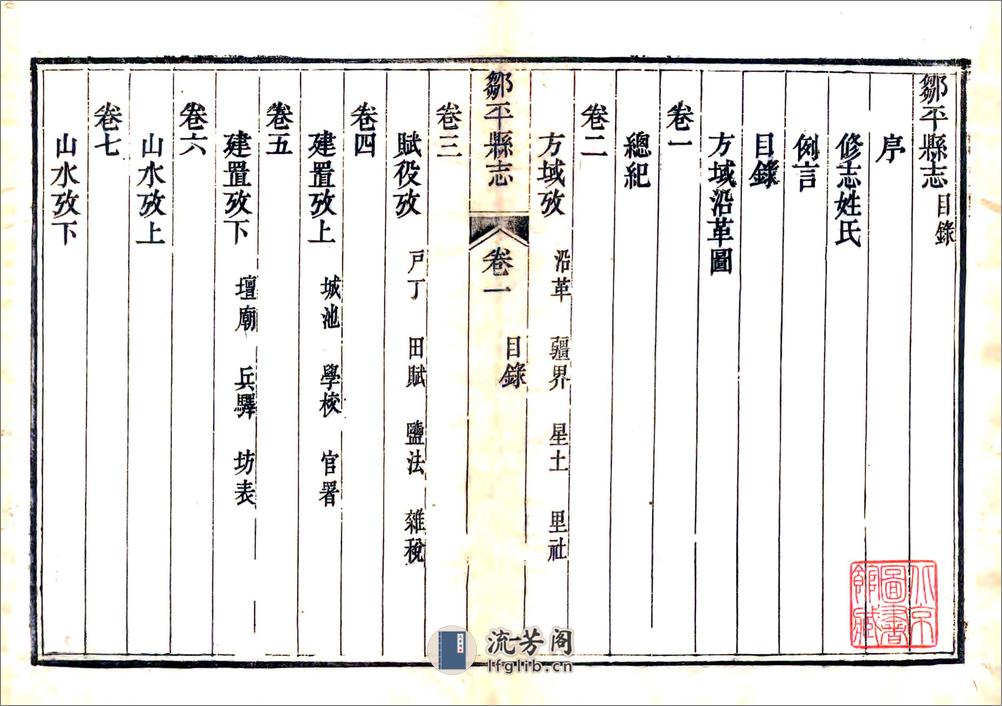 鄒平縣志目錄
序
修志姓氏
例言
目錄
方域沿革圖
卷一
總紀
卷二
方域攷 沿革 疆界 星土 里社
鄒平縣志 卷一 目錄
卷三
賦役攷 戸丁 田賦 鹽法 雜稅
卷四
建置攷上 城池 學校 官署
卷五
建置攷下 壇廟 兵驛 坊表
卷六
山水攷上
卷七
山水攷下
北京圖書館藏
流芳阁
lfglib.cn